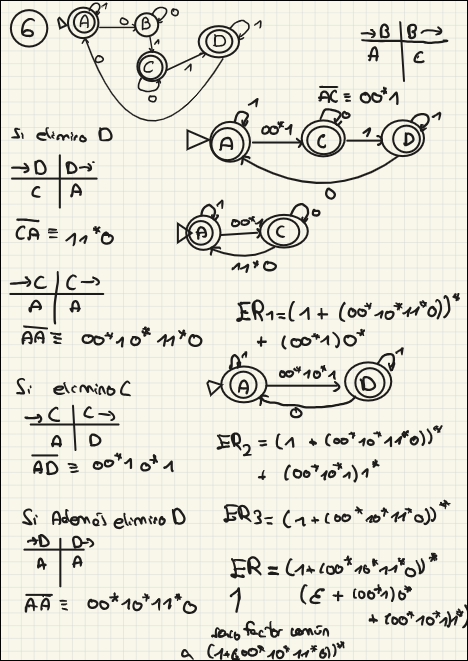 6
A 1 0 B 0 1 C 0 1 D 1 0
→B | B→
A | C
AC ≡ 00*1
Si elimino D
→D | D→
C | A
CA ≡ 11*0
A 1 00*1 C 0 1 D 1 0
A 1 00*1 C 0 11*0
→C | C→
A | A
AA ≡ 00*10*11*0
ER1=(1 + (00*10*11*0))*
+ (00*1)0*
Si elimino C
→C | C→
A | D
AD ≡ 00*10*1
A 1 00*10*1 D 1 0
ER2 = (1 + (00*10*11*0))*
+ (00*10*1)1*
Si Además elimino D
→D | D→
A | A
AA ≡ 00*10*11*0
ER3= (1+(00*10*11*0))*
ER= (1+(00*10*11*0))*
(ε + (00*1)0*
+ (00*10*1)1*)
saco factor común
a (1+(00*10*11*0))*